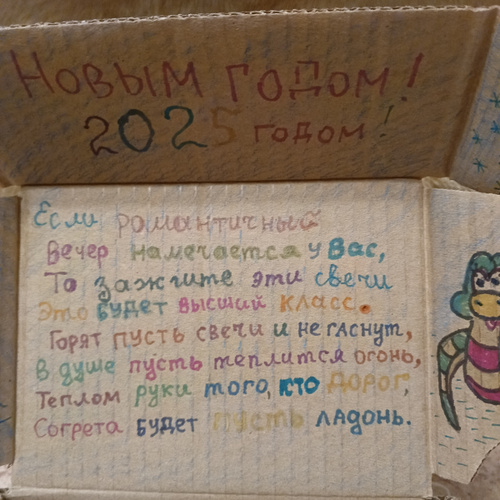 Новым годом!
2025 годом!
Если романтичный
Вечер намечается у Вас,
То зажгите эти свечи
Это будет высший класс.
Горят пусть свечи и не гаснут,
В душе пусть теплится огонь,
Теплом руки того, кто дорог,
Согрета будет пусть ладонь.